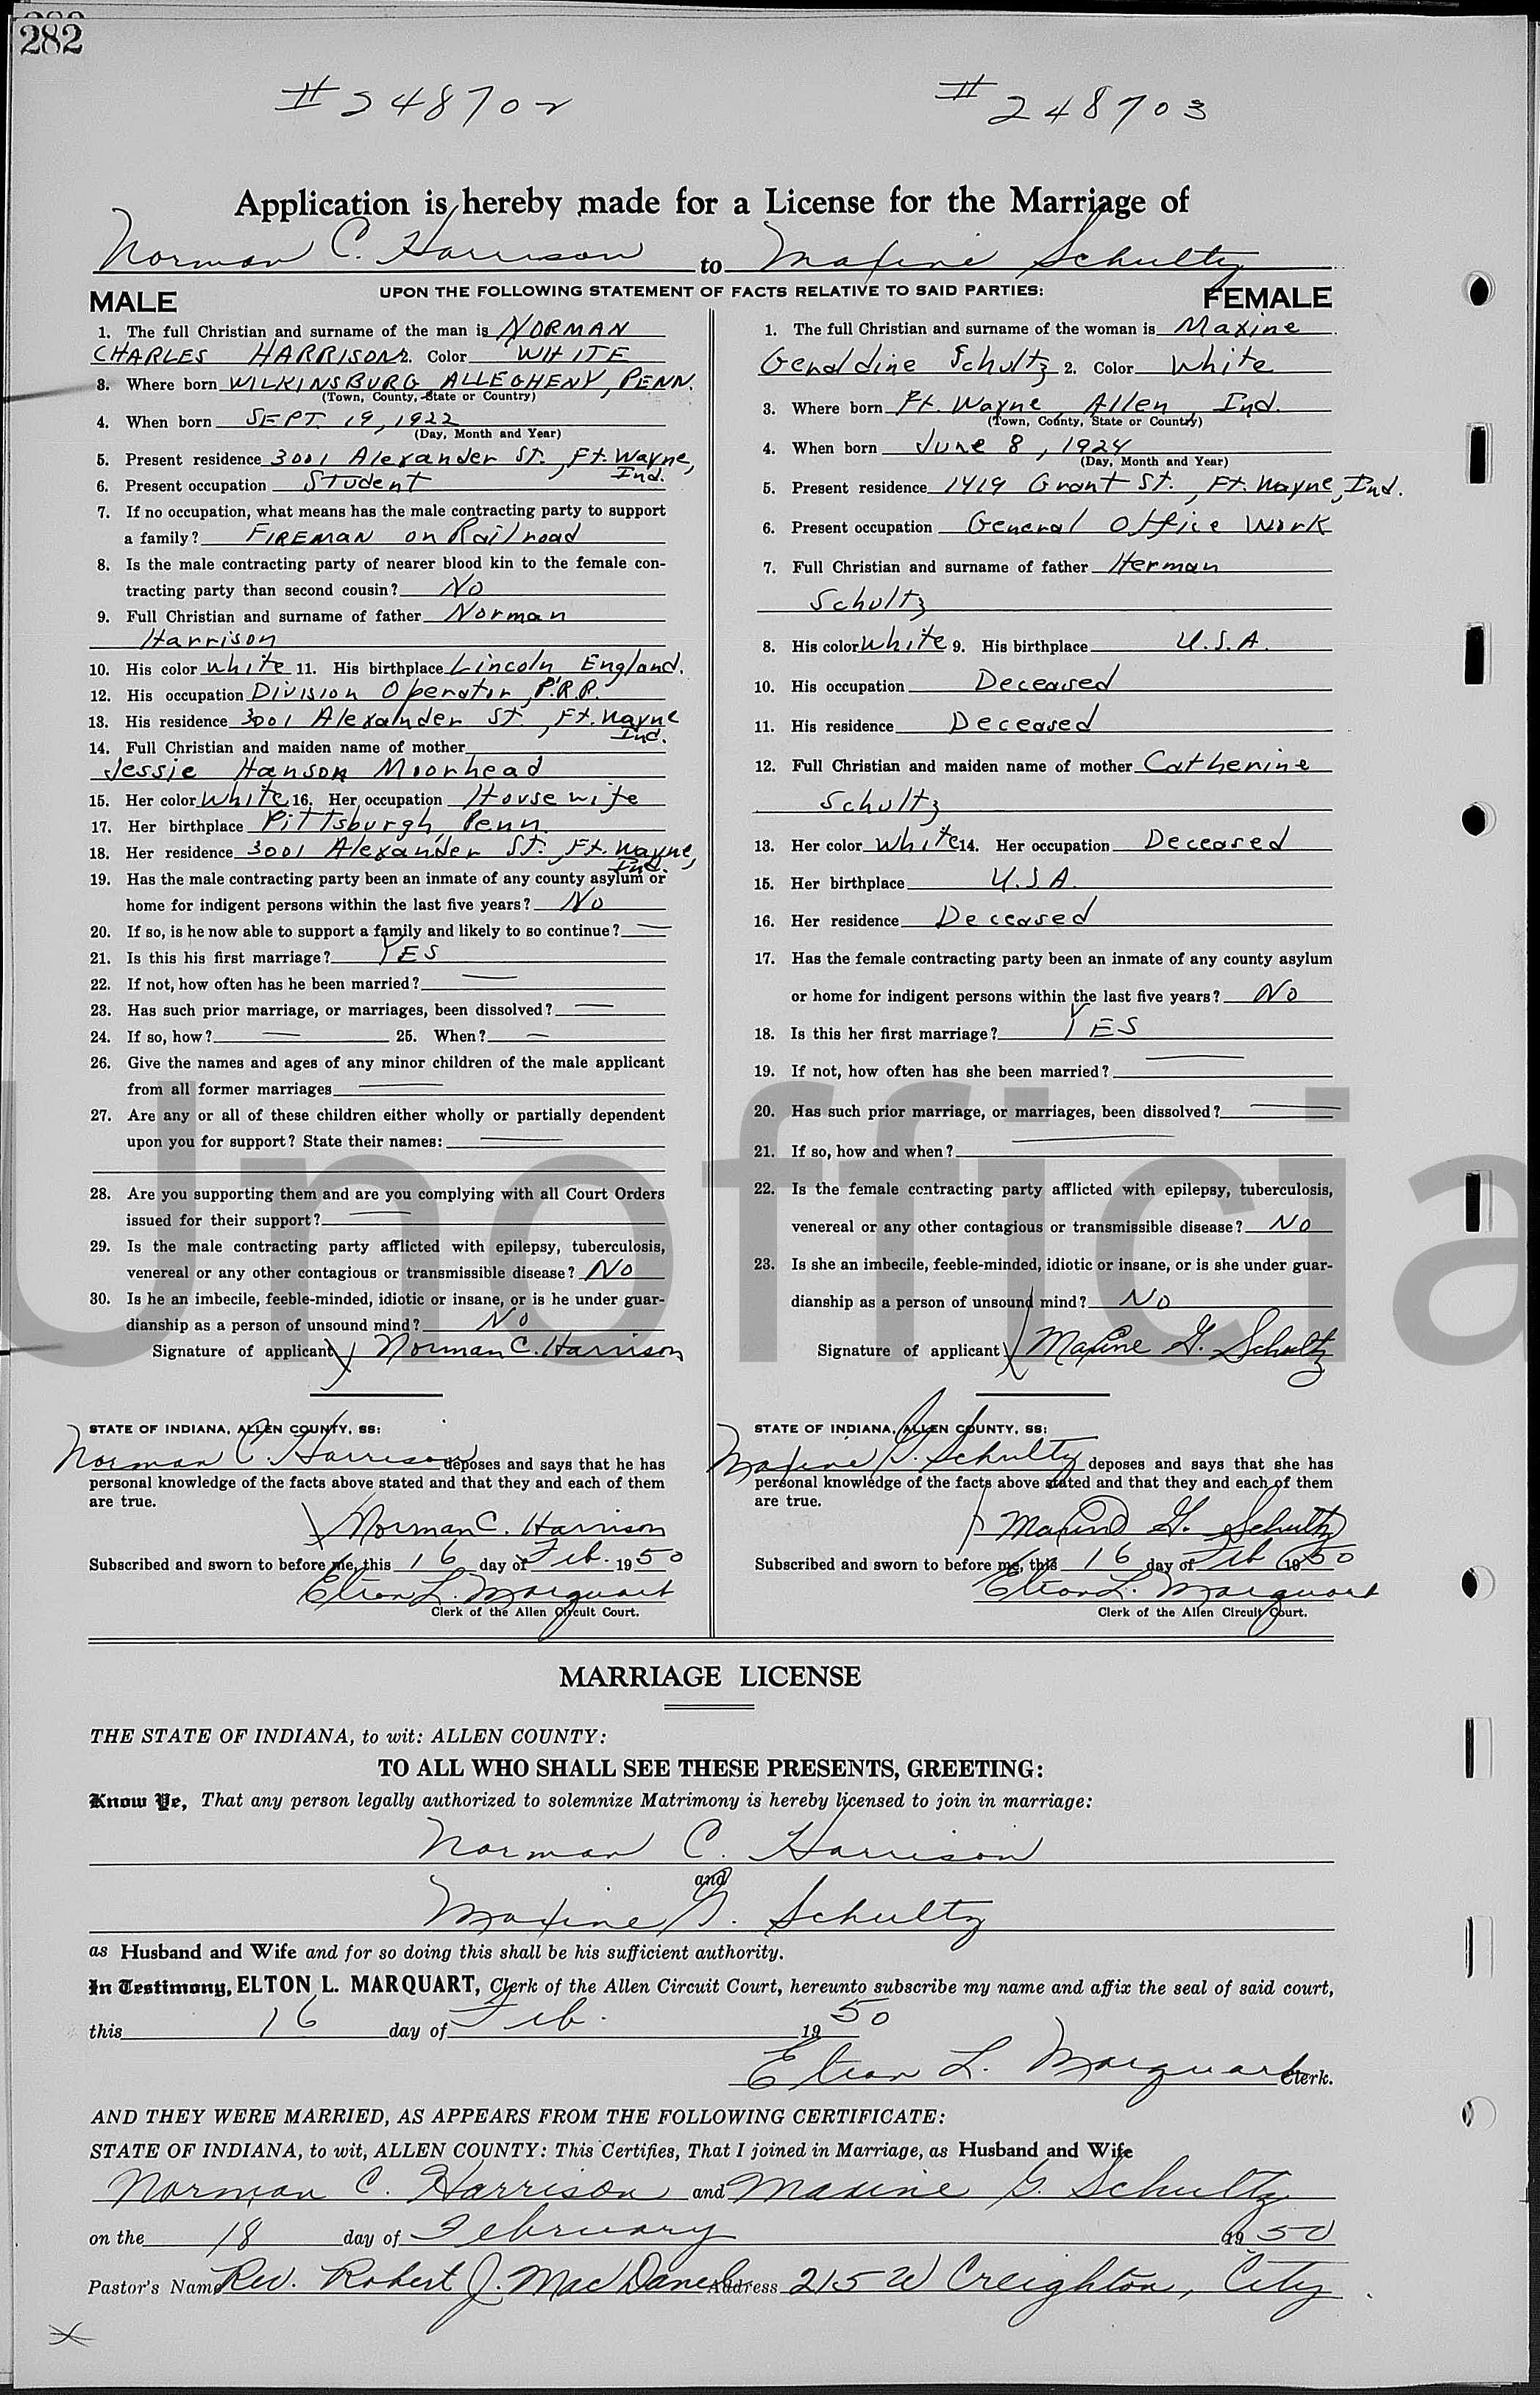 282
# 248702
# 248703
Application is hereby made for a License for the Marriage of
Norman C. Harrison to Maxine Schultz
UPON THE FOLLOWING STATEMENT OF FACTS RELATIVE TO SAID PARTIES:
MALE
1. The full Christian and surname of the man is NORMAN
CHARLES HARRISON 2. Color WHITE
3. Where born WILKINSBURG, ALLEGHENY, PENN.
(Town, County, State or Country)
4. When born SEPT. 19, 1922
(Day, Month and Year)
5. Present residence 3001 Alexander St., Ft. Wayne,
Ind.
6. Present occupation Student
7. If no occupation, what means has the male contracting party to support
a family? FIREMAN on Railroad
8. Is the male contracting party of nearer blood kin to the female con-
tracting party than second cousin? No
9. Full Christian and surname of father Norman
Harrison
10. His color white 11. His birthplace Lincoln, England.
12. His occupation Division Operator, P.R.R.
13. His residence 3001 Alexander St., Ft. Wayne
Ind.
14. Full Christian and maiden name of mother
Jessie Hanson Moorhead
15. Her color white 16. Her occupation Housewife
17. Her birthplace Pittsburgh, Penn.
18. Her residence 3001 Alexander St., Ft. Wayne,
Ind.
19. Has the male contracting party been an inmate of any county asylum or
home for indigent persons within the last five years? No
20. If so, is he now able to support a family and likely to so continue? —
21. Is this his first marriage? YES
22. If not, how often has he been married? —
23. Has such prior marriage, or marriages, been dissolved? —
24. If so, how? — 25. When? —
26. Give the names and ages of any minor children of the male applicant
from all former marriages —
27. Are any or all of these children either wholly or partially dependent
upon you for support? State their names: —
28. Are you supporting them and are you complying with all Court Orders
issued for their support? —
29. Is the male contracting party afflicted with epilepsy, tuberculosis,
venereal or any other contagious or transmissible disease? No
30. Is he an imbecile, feeble-minded, idiotic or insane, or is he under guar-
dianship as a person of unsound mind? No
Signature of applicant Norman C. Harrison
STATE OF INDIANA, ALLEN COUNTY, SS:
Norman C. Harrison deposes and says that he has
personal knowledge of the facts above stated and that they and each of them
are true.
Norman C. Harrison
Subscribed and sworn to before me, this 16 day of Feb. 1950
Elton L. Marquart
Clerk of the Allen Circuit Court.
FEMALE
1. The full Christian and surname of the woman is Maxine
Geraldine Schultz 2. Color White
3. Where born Ft. Wayne, Allen, Ind.
(Town, County, State or Country)
4. When born June 8, 1924
(Day, Month and Year)
5. Present residence 1419 Grant St., Ft. Wayne, Ind.
6. Present occupation General Office Work
7. Full Christian and surname of father Herman
Schultz
8. His color white 9. His birthplace U.S.A.
10. His occupation Deceased
11. His residence Deceased
12. Full Christian and maiden name of mother Catherine
Schultz
13. Her color white 14. Her occupation Deceased
15. Her birthplace U.S.A.
16. Her residence Deceased
17. Has the female contracting party been an inmate of any county asylum
or home for indigent persons within the last five years? No
18. Is this her first marriage? YES
19. If not, how often has she been married? —
20. Has such prior marriage, or marriages, been dissolved? —
21. If so, how and when? —
22. Is the female contracting party afflicted with epilepsy, tuberculosis,
venereal or any other contagious or transmissible disease? No
23. Is she an imbecile, feeble-minded, idiotic or insane, or is she under guar-
dianship as a person of unsound mind? No
Signature of applicant Maxine G. Schultz
STATE OF INDIANA, ALLEN COUNTY, SS:
Maxine G. Schultz deposes and says that she has
personal knowledge of the facts above stated and that they and each of them
are true.
Maxine G. Schultz
Subscribed and sworn to before me, this 16 day of Feb 1950
Elton L. Marquart
Clerk of the Allen Circuit Court.
Unofficia
MARRIAGE LICENSE
THE STATE OF INDIANA, to wit: ALLEN COUNTY:
TO ALL WHO SHALL SEE THESE PRESENTS, GREETING:
Know Ye, That any person legally authorized to solemnize Matrimony is hereby licensed to join in marriage:
Norman C. Harrison
and
Maxine G. Schultz
as Husband and Wife and for so doing this shall be his sufficient authority.
In Testimony, ELTON L. MARQUART, Clerk of the Allen Circuit Court, hereunto subscribe my name and affix the seal of said court,
this 16 day of Feb. 1950
Elton L. Marquart Clerk.
AND THEY WERE MARRIED, AS APPEARS FROM THE FOLLOWING CERTIFICATE:
STATE OF INDIANA, to wit, ALLEN COUNTY: This Certifies, That I joined in Marriage, as Husband and Wife
Norman C. Harrison and Maxine G. Schultz
on the 18 day of February 1950
Pastor's Name Rev. Robert J. Mac Daneel Address 215 W Creighton, City